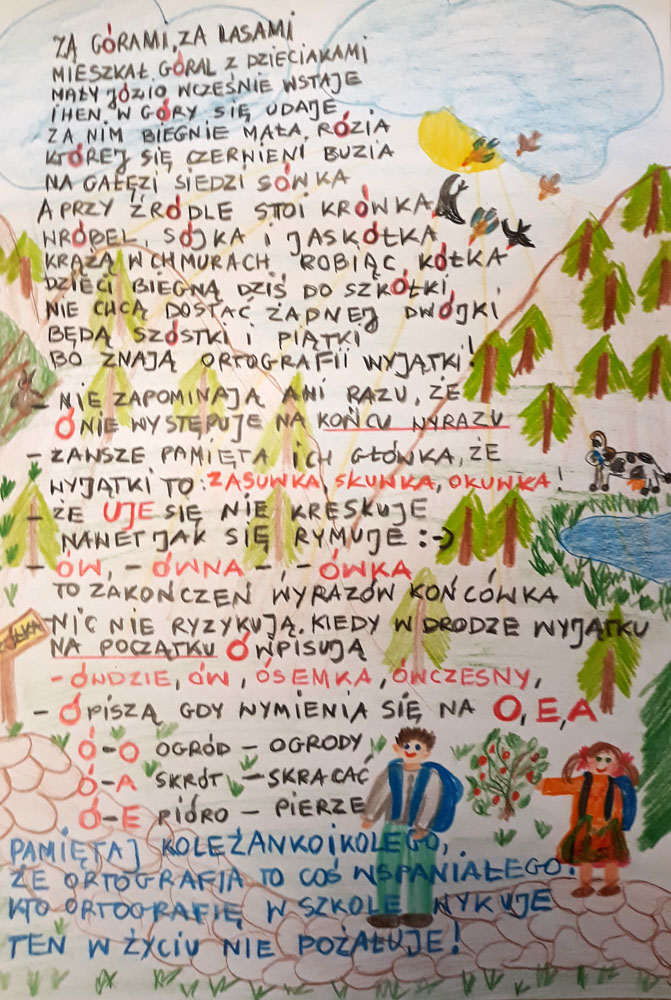 ZA GÓRAMI, ZA LASAMI
MIESZKAŁ GÓRAL Z DZIECIAKAMI
MAŁY JÓZIO WCZEŚNIE WSTAJE
I HEN W GÓRY SIĘ UDAJE
ZA NIM BIEGNIE MAŁA RÓZIA
KTÓREJ SIĘ CZERWIENI BUZIA
NA GAŁĘZI SIEDZI SÓWKA
A PRZY ŹRÓDLE STOI KRÓWKA
WRÓBEL, SÓJKA I JASKÓŁKA
KRĄŻĄ W CHMURACH ROBIĄC KÓŁKA
DZIECI BIEGNĄ DZIŚ DO SZKÓŁKI
NIE CHCĄ DOSTAĆ ŻADNEJ DWÓJKI
BĘDĄ SZÓSTKI I PIĄTKI
BO ZNAJĄ ORTOGRAFII WYJĄTKI!
- NIE ZAPOMINAJĄ ANI RAZU, ŻE
Ó NIE WYSTĘPUJE NA KOŃCU WYRAZU
- ZAWSZE PAMIĘTA ICH GŁÓWKA, ŻE
WYJĄTKI TO: ZASUWKA, SKUWKA, OKUWKA!
- ŻE UJE SIĘ NIE KRESKUJE
NAWET JAK SIĘ RYMUJE :-)
- ÓW, - ÓWNA - , - ÓWKA
TO ZAKOŃCZEŃ WYRAZÓW KOŃCÓWKA
- NIC NIE RYZYKUJĄ, KIEDY W DRODZE WYJĄTKU
NA POCZĄTKU Ó WPISUJĄ
- ÓWDZIE, ÓW, ÓSEMKA, ÓWCZESNY,
- Ó PISZĄ GDY WYMIENIA SIĘ NA O, E, A
Ó-O OGRÓD - OGRODY
Ó-A SKRÓT - SKRACAĆ
Ó-E PIÓRO - PIERZE
PAMIĘTAJ KOLEŻANKO I KOLEGO,
ŻE ORTOGRAFIA TO COŚ WSPANIAŁEGO.
KTO ORTOGRAFIĘ W SZKOLE WYKUJE
TEN W ŻYCIU NIE POŻAŁUJE!